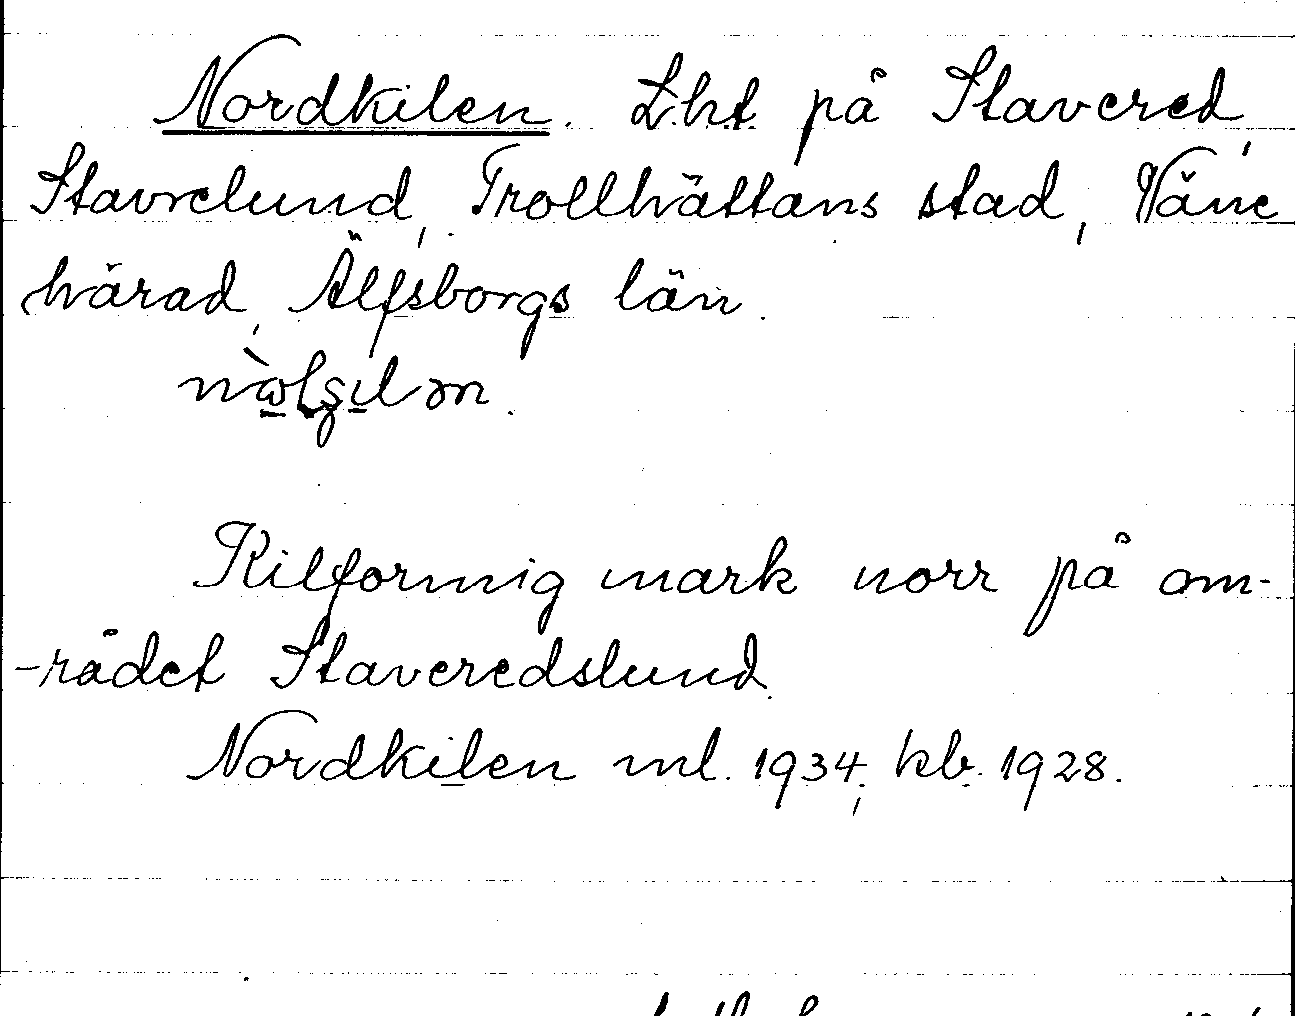 Nordkilen. Lht på Stavered,
Stavrelund, Trollhättans stad, Väne
härad, Älfsborgs län.
Kilformig mark norr på om-
-rådet Staveredslund.
Nordkilen ml. 1934; kb. 1928.